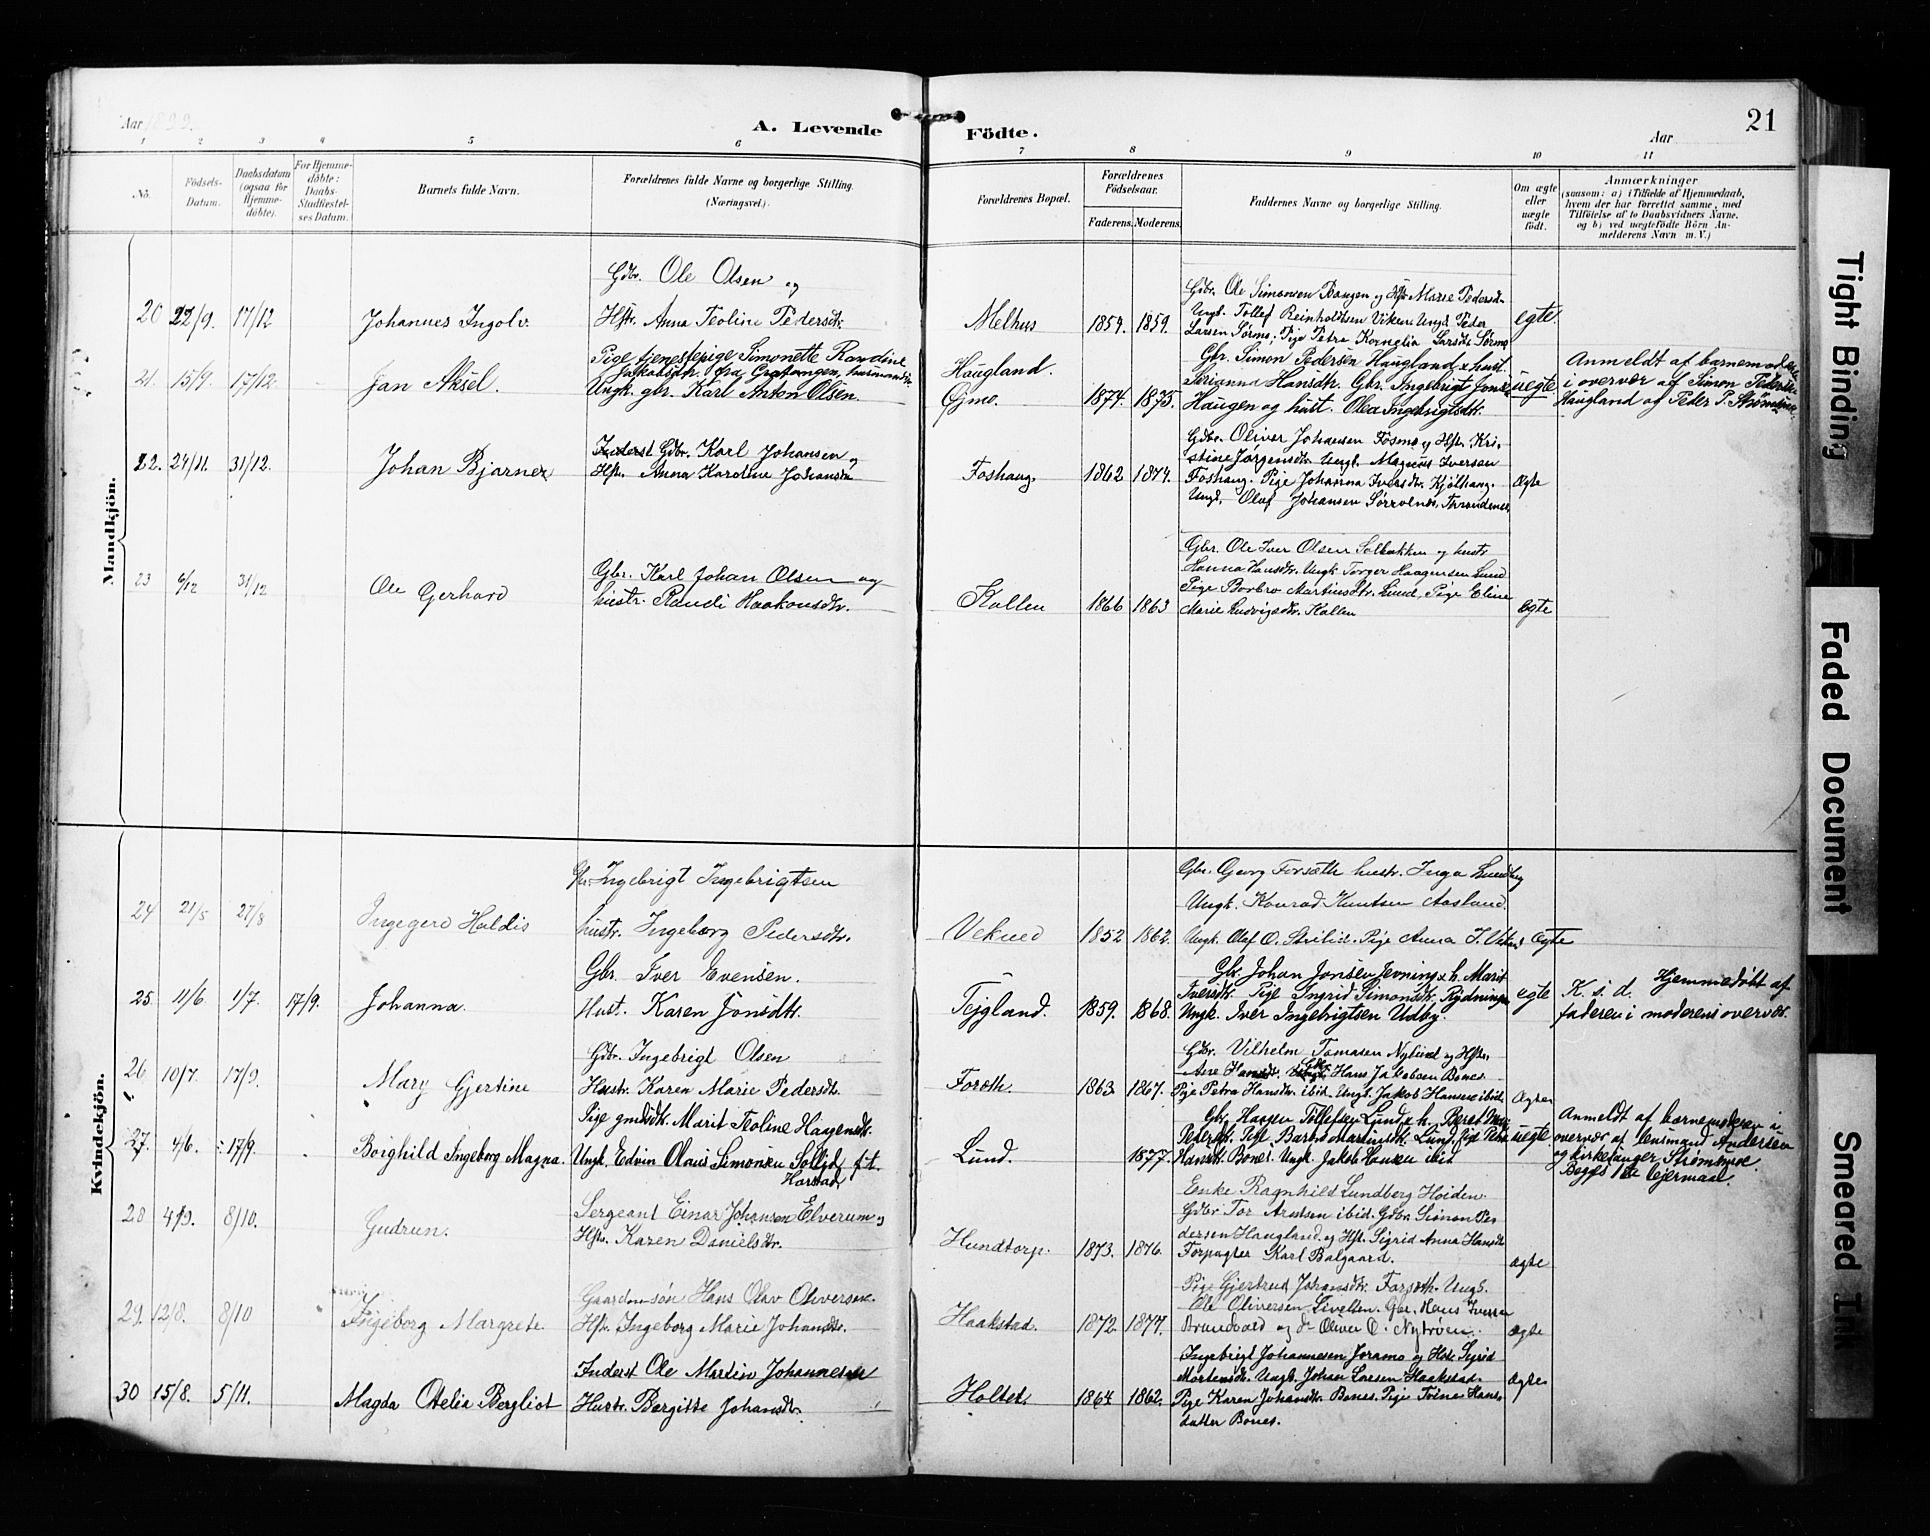 Aar 1899.
A. Levende Födte.
Aar
21
1 2 3 4 5 6 7 8 9 10 11
No.
Födsels-Datum.
Daabsdatum (ogsaa for Hjemmedöbte).
For Hjemmedöbte: Daabs-Stadfæstelses Datum.
Barnets fulde Navn.
Forældrenes fulde Navne og borgerlige Stilling.
(Næringsvei.)
Forældrenes Bopæl.
Forældrenes Födselsaar.
Faderens. Moderens.
Faddernes Navne og borgerlige Stilling.
Om ægte eller uægte födt.
Anmærkninger
(saasom: a) i Tilfælde af Hjemmedaab,
hvem der har forrettet samme, med
Tilföielse af to Daabsvidners Navne.
og b) ved uægtefödte Börn An-
melderens Navn m. V.)
Mandkjön.
Gdbr. Ole Olsen og
20 22/9. 17/12 Johannes Ingolv. Hstr. Anna Teoline Pedersdtr. Melhus 1854. 1859.
Gdbr. Ole Simonsen Baugen og Hstr Marie Pedersdtr.
Ungk. Tollef Reinholdtsen Viken Ungk. Peder
Larsen Sørmo; Pige Petra Kornelia Larsdtr Sørmo
egte.
Pige tjenestepige Simonette Randine
21. 15/9. 17/12. Jan Aksel. Jakobsdtr. fra Gratangen, husmandsd.
Ungk. gbr. Karl Anton Olsen.
Haugland.
Øjmo. 1874. 1875.
Gbr. Simon Pedersen Haugland & hust.
Serianna Hansdtr. Gbr. Ingebrigt Jonsen
Haugen og hust. Olea Ingebrigtsdtr.
uegte
Anmeldt af barnemoderen
i overvær af Simon Pedersen
Haugland og Peder P. Strømsmo
22. 24/11. 31/12. Johan Bjarne Inderst Gdbr. Karl Johansen og
Hstr. Anna Karoline Johansdtr
Foshaug. 1862 1874.
Gdbr. Oliver Johansen Fosmo og Hstr. Kri-
stine Jørgensdtr. Ungk. Magnus Iversen
Foshaug. Pige Johanna Iversdtr. Kjølhaug.
Ungk. Olaf Johansen Sørvolnes, Trondenes.
Ægte
23 6/12 31/12 Ole Gerhard Gbr. Karl Johan Olsen og
hustr. Randi Haakonsdtr.
Kollen 1866 1863
Gbr. Ole Iver Olsen Solbakken og hustr
Hanna Hansdtr. Ungk Torger Haagensen Lund
Pige Borbro Martinsdtr. Lund, Pige Eline
Marie Ludvigsdtr. Kollen
Ægte
Kvindekjön.
24 21/5 27/8 Ingegerd Haldis Gbr. Ingebrigt Ingebrigtsen
hustr. Ingeborg Pedersdtr.
1852 1862.
Gbr. Georg Forsæth hustr. Inga Lundberg
Ungk. Konrad Knutsen Aasland.
Ungk. Olaf O. Pige Anna
Ægte
25. 11/6. 1/7. 17/9. Johanna. Gbr. Iver Evensen.
Hust. Karen Jonsdtr.
Tejgland. 1859. 1868.
Gbr. Johan Jonsen Jevning & h. Marit
Iversdtr. Pige Ingrid Simonsdtr. Rydningen
Ungk. Iver Ingebrigtsen Udby.
egte
K. s. d. Hjemmedøbt af
faderen i moderens overvær.
26 10/7. 17/9. Mary Gjertine Gdbr. Ingebrigt Olsen
Hustr. Karen Marie Pedersdtr.
Foræth. 1863 1867.
Gdbr. Vilhelm Tomasen Nylund og Hstr.
Ane Hansdtr. Gdbr. Hans Jakobsen Bones.
Pige Petra Hansdtr. ibid. Ungk. Jakob Hansen ibid.
Ægte
27. 4/6. 17/9. Borghild Ingeborg Magna. Pige gmdsdtr. Marit Teoline Hagensdtr.
Ungk. Edvin Olaus Simonsen Sollid f. t.
Harstad.
Lund. 1877.
Gbr. Haagen Tollefsen Lund & h. Beret
Pedersdtr. Pige Barbro Martinsdtr. Lund. Pige Petra
Hansdtr. Bones. Ungk. Jakob Hansen ibid
uegte
Anmeldt af barnemoderen i
overvær af lensmand Andersen
og kirkesanger Strømsmoe.
Begges 1ste lejermaal.
28 4/9. 8/10. Gudrun. Sergeant Einar Johansen Elverum og
Hstr. Karen Danielsdtr.
Hundtorp. 1873. 1876.
Enke Ragnhild Lundberg Høiden.
Gdbr Tor Arntsen ibid. Gdbr. Simon Pe-
dersen Haugland og Hstr. Sigrid Anna Hansdtr
Forpagter Karl Balgaard.
Ægte
29. 12/8. 8/10 Ingeborg Margrete Gaardmsøn Hans Olav Oliversen.
Hstr. Ingeborg Marie Johansdtr.
Haakstad. 1872 1877.
Pige Gjertrud Johansdtr. Forsæth. Ungk.
Ole Oliversen Livelten. Gbr. Hans Iversen
Brandvold og do Oliver O. Nytrøen.
Ægte
30 15/8. 5/11. Magda Otelia Bergliot Inderst Ole Martin Johannesen
Hustr. Bergitte Johansdtr.
Holtet. 1864 1862.
Ingebrigt Johannesen Joramo og Hst. Sigrid
Mortensdtr. Ungk. Johan Larsen Haakstad.
Pige Karen Johansdtr. Bones. Pige Trine Hans-
datter Bones.
Ægte
Tight Binding
Faded Document
Smeared Ink